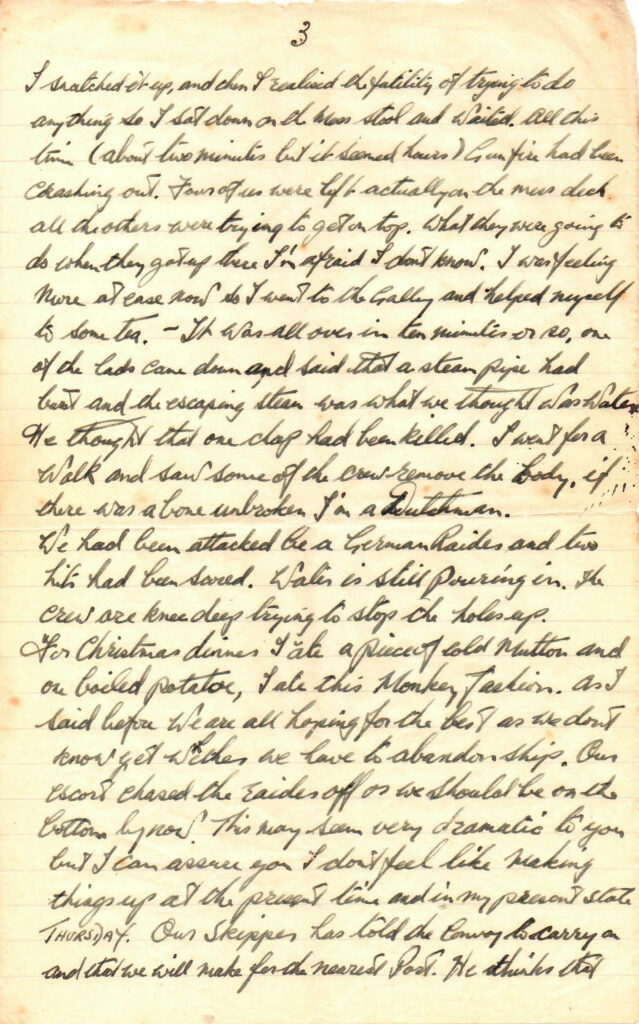 3
I snatched it up, and then I realised the futility of trying to do
anything so I sat down on the Mess stool and Waited. All this
time (about two minutes but it seemed hours) Gunfire had been
Crashing out. Four of us were left actually on the mess deck
all the others were trying to get on top. What they were going to
do when they got up there I'm afraid I dont know. I was feeling
More at ease now so I went to the Galley and helped myself
to some tea. – It was all over in ten minutes or so, one
of the lads came down and said that a steam pipe had
burst and the escaping steam was what we thought was Water
He thought that one chap had been killed. I went for a
Walk and saw some of the crew remove the body, if
there was a bone unbroken I'm a Dutchman.
We had been attacked be a German Raider and two
hits had been scored. Water is still Pouring in. The
crew are knee deep trying to stop the holes up.
For Christmas dinner I ate a piece of cold Mutton and
one boiled potatoe, I ate this Monkey fashion. As I
said before We are all hoping for the best as we dont
know yet Wether we have to abandon ship. Our
escort chased the raider off or we should be on the
bottom by now This may seem very dramatic to you
but I can assure you I dont feel like Making
things up at the present time and in my present state
THURSDAY. Our Skipper has told the Convoy to carry on
and that we will make for the nearest Port. He thinks that